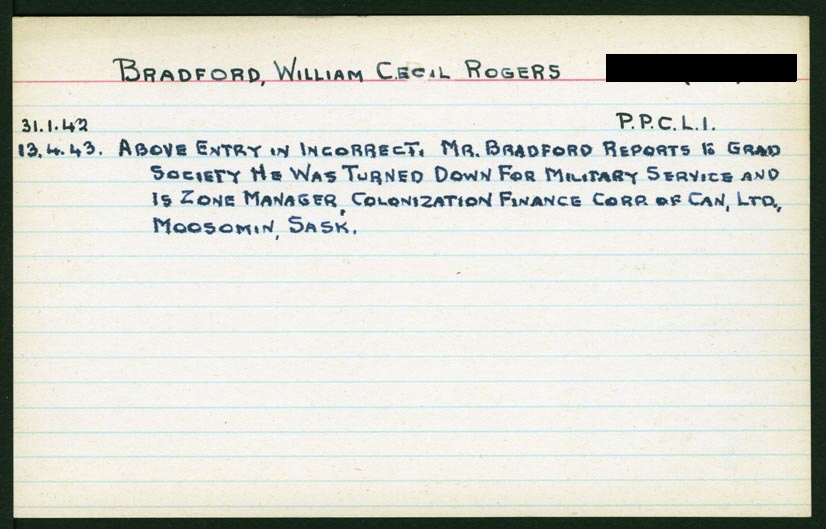 BRADFORD, WILLIAM CECIL ROGERS
31.1.42 P.P.C.L.I.
13.4.43. ABOVE ENTRY IN INCORRECT. MR. BRADFORD REPORTS TO GRAD
SOCIETY HE WAS TURNED DOWN FOR MILITARY SERVICE AND
IS ZONE MANAGER, COLONIZATION FINANCE CORP. OF CAN, LTD.,
MOOSOMIN, SASK.